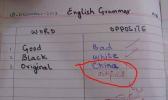 English Grammar
WORD OPPOSITE
1. Good Bad
2. Black White
3. Original China